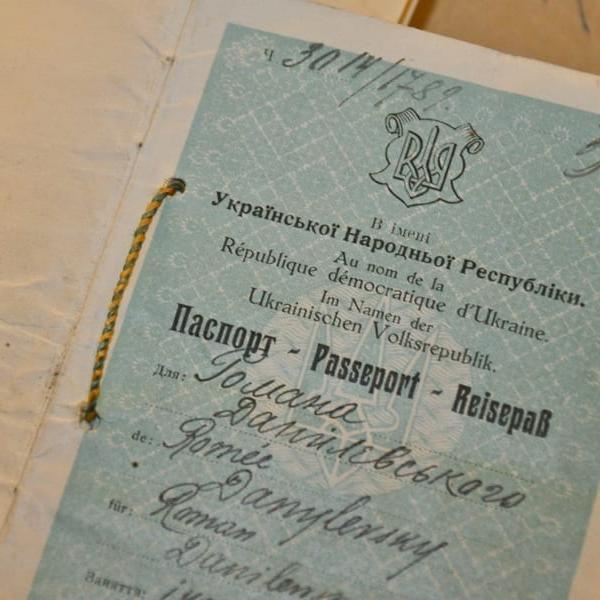 Ч 3014/1789.
В імені
Української Народньої Республіки.
Au nom de la
République démocratique d'Ukraine.
Im Namen der
Ukrainischen Volksrepublik.
Паспорт - Passeport - Reisepaß
Для: Романа
Данилевського
de: Romée
Danylevsky
für: Roman
Заняття: